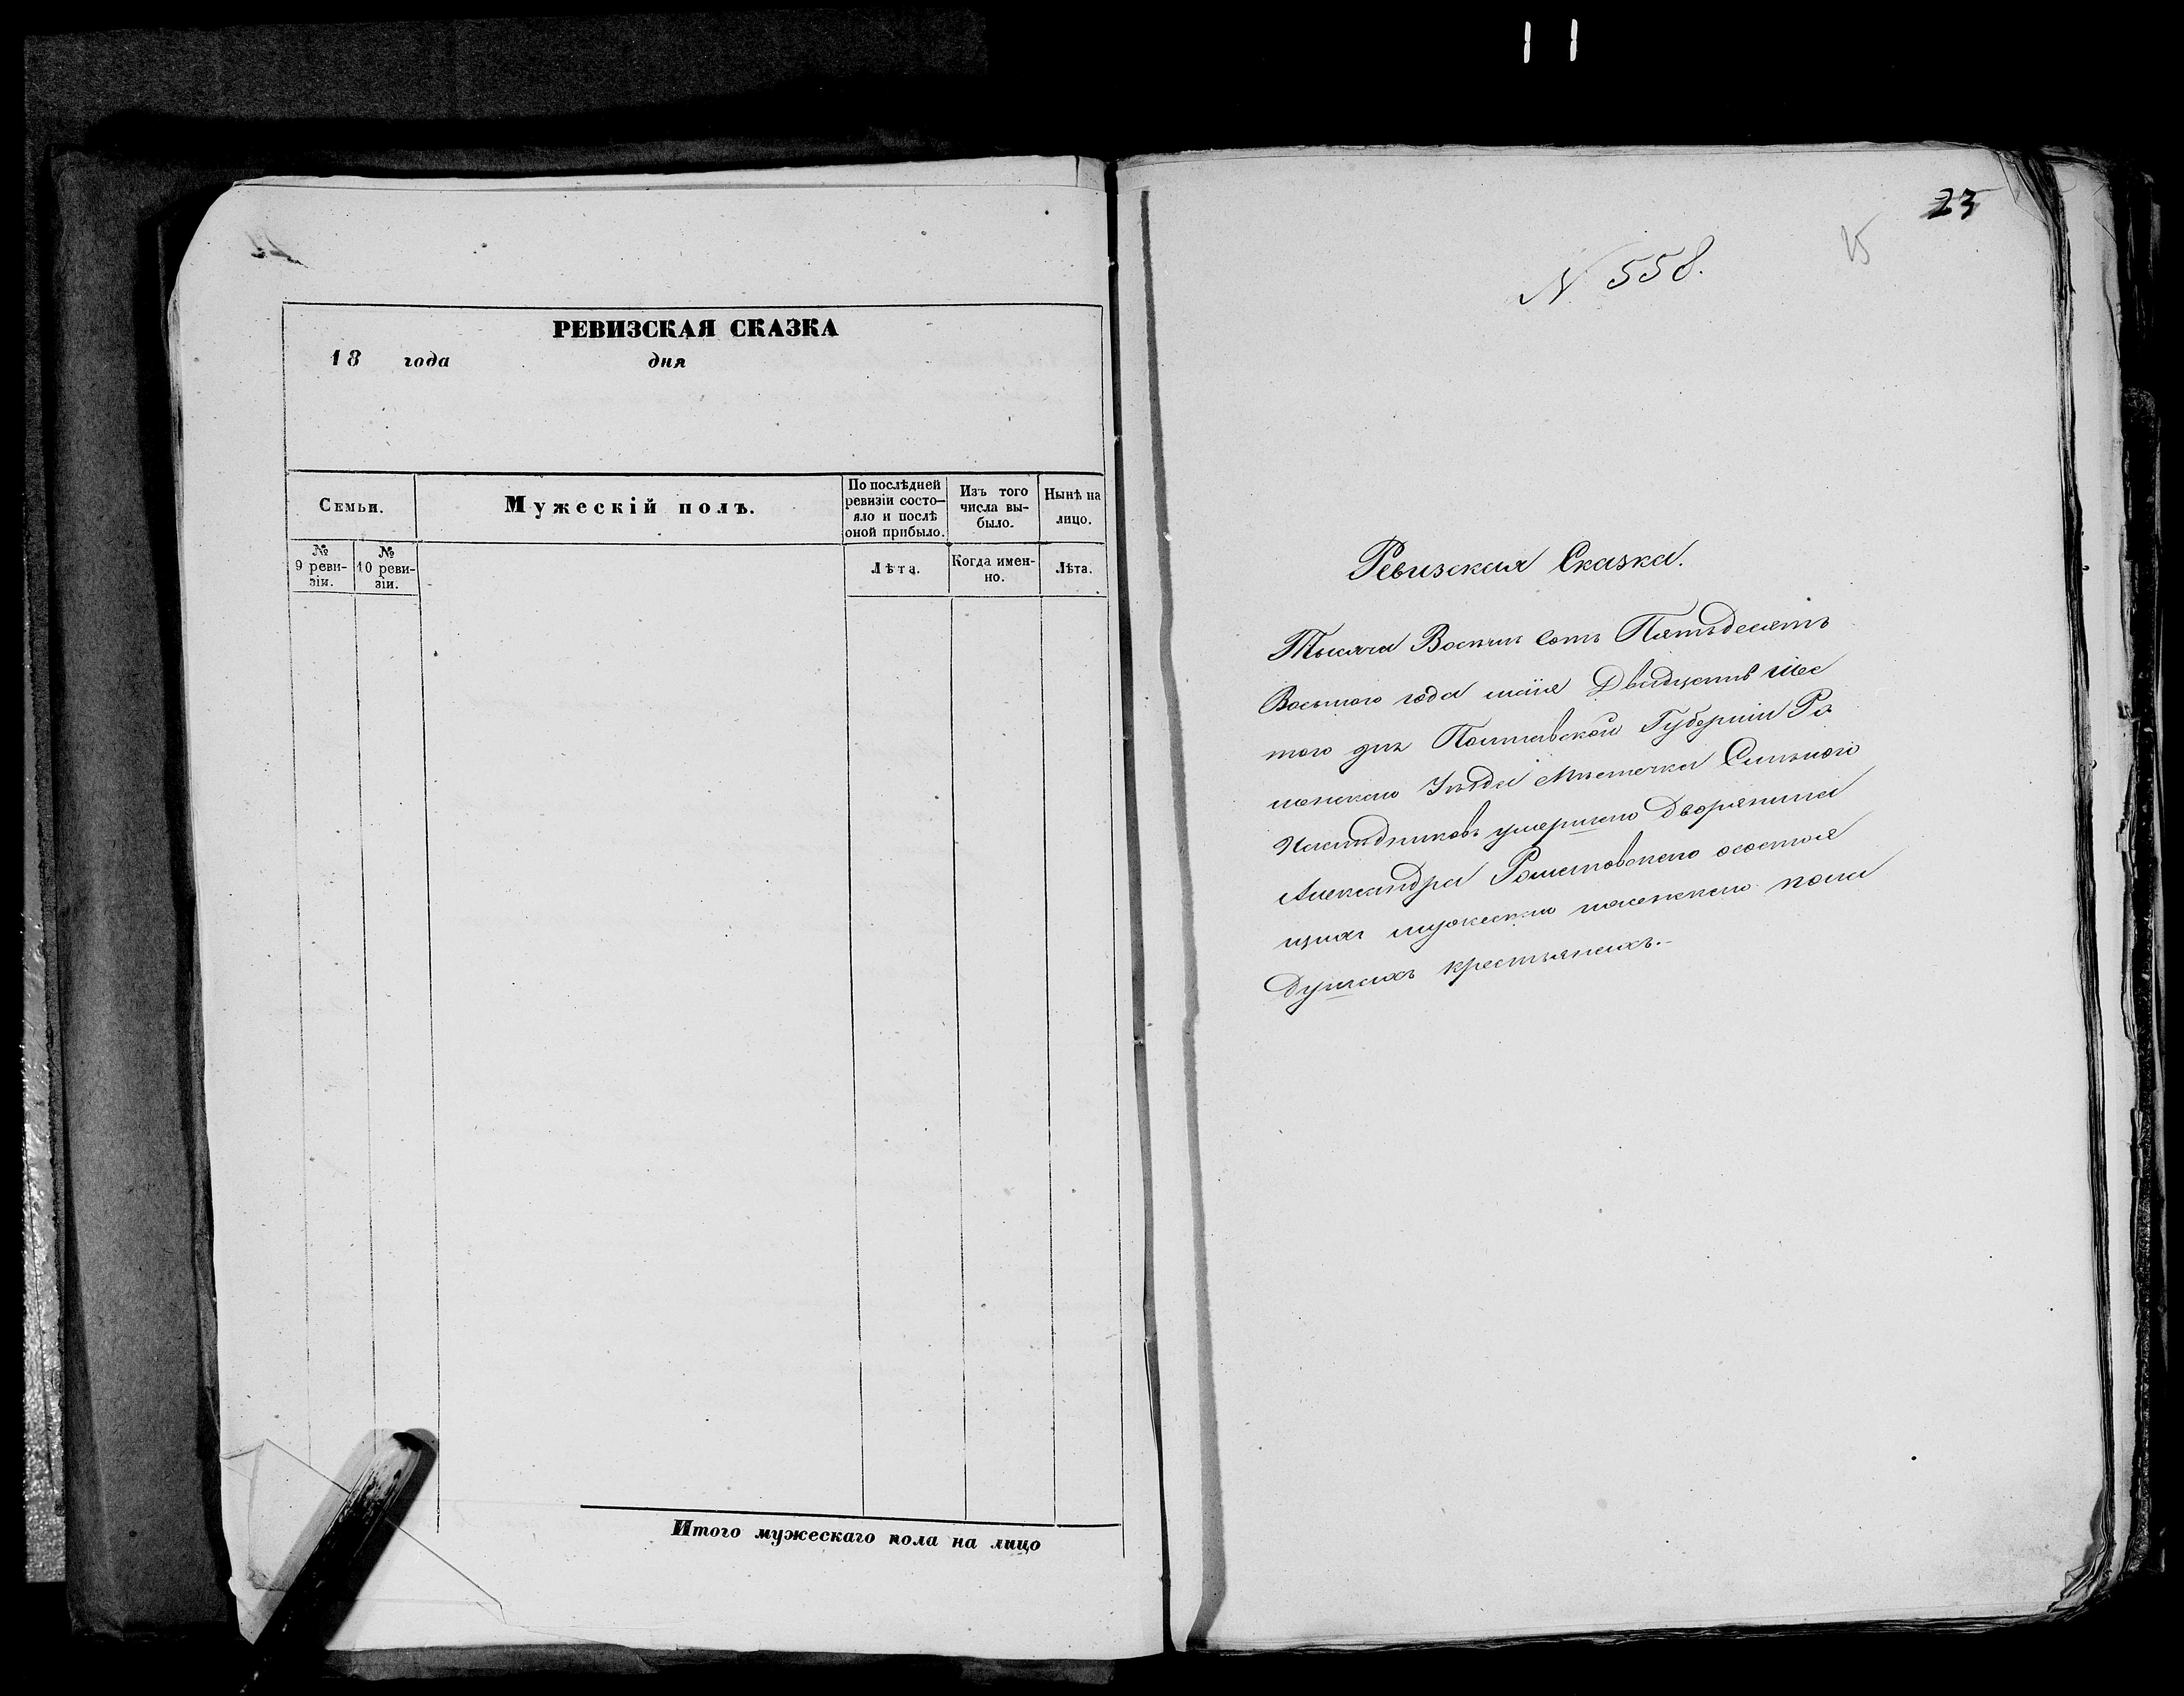 РЕВИЗСКАЯ СКАЗКА
18 года дня
Семьи.
Мужескій полъ.
По послѣдней
ревизіи состо-
яло и послѣ
оной прибыло.
Изъ того
числа вы-
было.
Нынѣ на
лицо.
№
9 реви-
зіи.
№
10 реви-
зіи.
Лѣта.
Когда имен-
но.
Лѣта.
Итого мужескаго пола на лицо
23
N 558.
Ревизская Сказка.
Тысяча Восемь сотъ Пятьдесятъ
Восьмого года маія Двадцать шес
того дня Полтавской Губерніи Ро
менскаго Уѣзда Мѣстечка Смѣлого
Наслѣдниковъ умершаго Дворянина
Александра осостоя
щихъ мужеска
душахъ крестьянахъ.